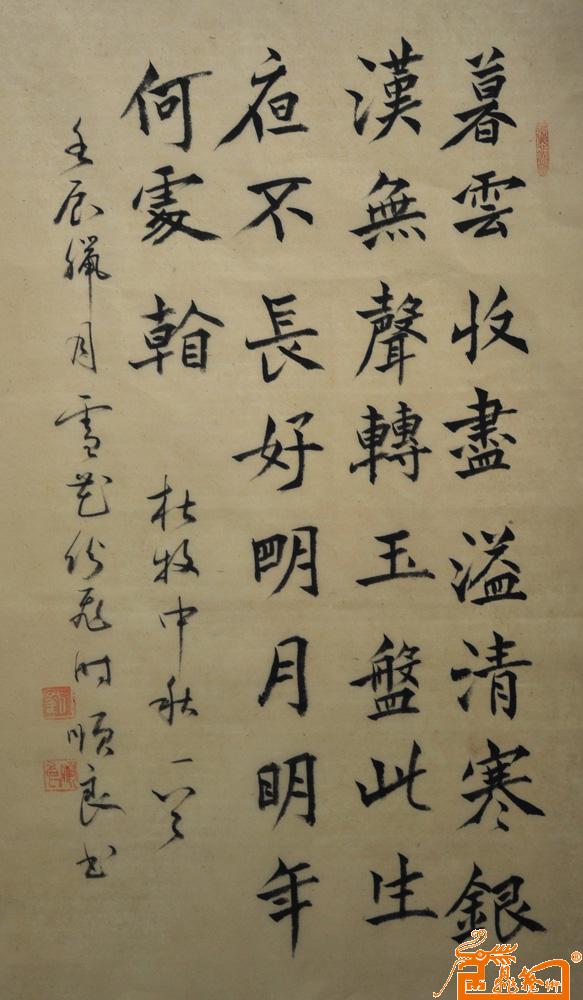 暮雲收盡溢清寒銀
漢無聲轉玉盤此生
夜不長好明月明年
何處看
杜牧中秋一首
壬辰臘月雪花紛飛时順良书